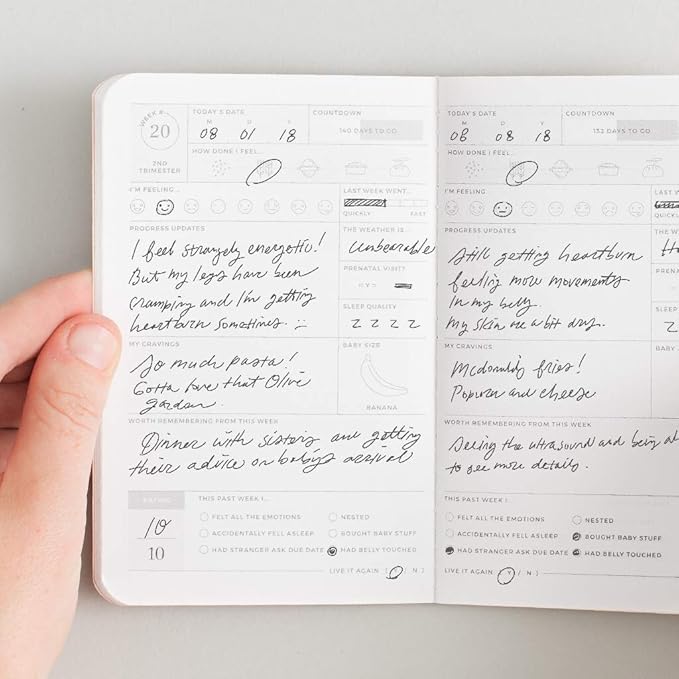 WEEK #
20
2ND
TRIMESTER
TODAY'S DATE
M D Y
08 01 18
COUNTDOWN
140 DAYS TO GO
HOW DONE I FEEL...
I'M FEELING...
LAST WEEK WENT...
QUICKLY FAST
PROGRESS UPDATES
I feel strangely energetic!
But my legs have been
cramping and I'm getting
heartburn sometimes. :)
THE WEATHER IS...
Unbearable
PRENATAL VISIT?
SLEEP QUALITY
Z Z Z Z
MY CRAVINGS
So much pasta!
Gotta love that Olive
garden.
BABY SIZE
BANANA
WORTH REMEMBERING FROM THIS WEEK
Dinner with sisters and getting
their advice on baby's arrival
RATING
10
10
THIS PAST WEEK I...
FELT ALL THE EMOTIONS NESTED
ACCIDENTALLY FELL ASLEEP BOUGHT BABY STUFF
HAD STRANGER ASK DUE DATE HAD BELLY TOUCHED
LIVE IT AGAIN ( Y / N )
TODAY'S DATE
M D Y
08 08 18
COUNTDOWN
132 DAYS TO GO
HOW DONE I FEEL...
I'M FEELING...
LAST W
QUICKLY
PROGRESS UPDATES
Still getting heartburn
feeling more movements
in my belly.
My skin are a bit dry.
THE WE
Ho
PRENA
SLEEP
Z
MY CRAVINGS
Mcdonald's fries!
Popcorn and cheese
BABY
WORTH REMEMBERING FROM THIS WEEK
Seeing the ultrasound and being a
to see more details.
THIS PAST WEEK I...
FELT ALL THE EMOTIONS NESTED
ACCIDENTALLY FELL ASLEEP BOUGHT BABY STUFF
HAD STRANGER ASK DUE DATE HAD BELLY TOUCHED
LIVE IT AGAIN ( Y / N )